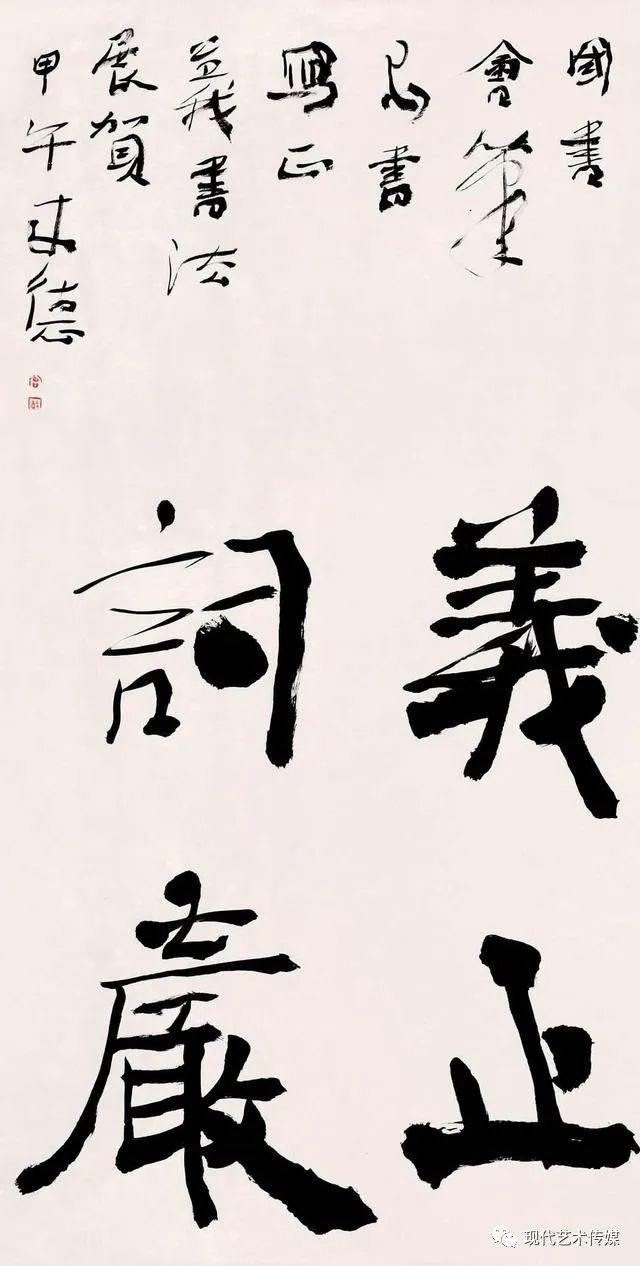 國書
會筆
書
寫正
義書法
展賀
甲午德
義正
詞嚴
现代艺术传媒